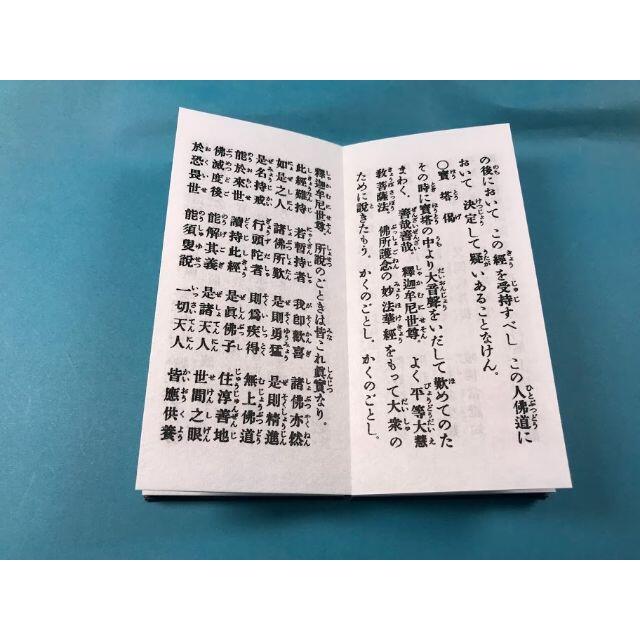 の後において この經を受持すべし この人佛道に
おいて 決定して疑いあることなけん。
〇寶塔偈
その時に寶塔の中より大音聲をいだして歎めてのた
まわく、善哉善哉 釋迦牟尼世尊、よく平等大慧
敎菩薩法、佛所護念の妙法華經をもって大衆の
ために說きたもう。かくのごとし、かくのごとし。
釋迦牟尼世尊、所說のごときは皆これ眞實なり。
此經難持 若暫持者 我卽歡喜 諸佛亦然
如是之人 諸佛所歎 是則勇猛 是則精進
是名持戒 行頭陀者 則爲疾得 無上佛道
能於來世 讀持此經 是眞佛子 住淳善地
佛滅度後 能解其義 是諸天人 世間之眼
於恐畏世 能須臾說 一切天人 皆應供養